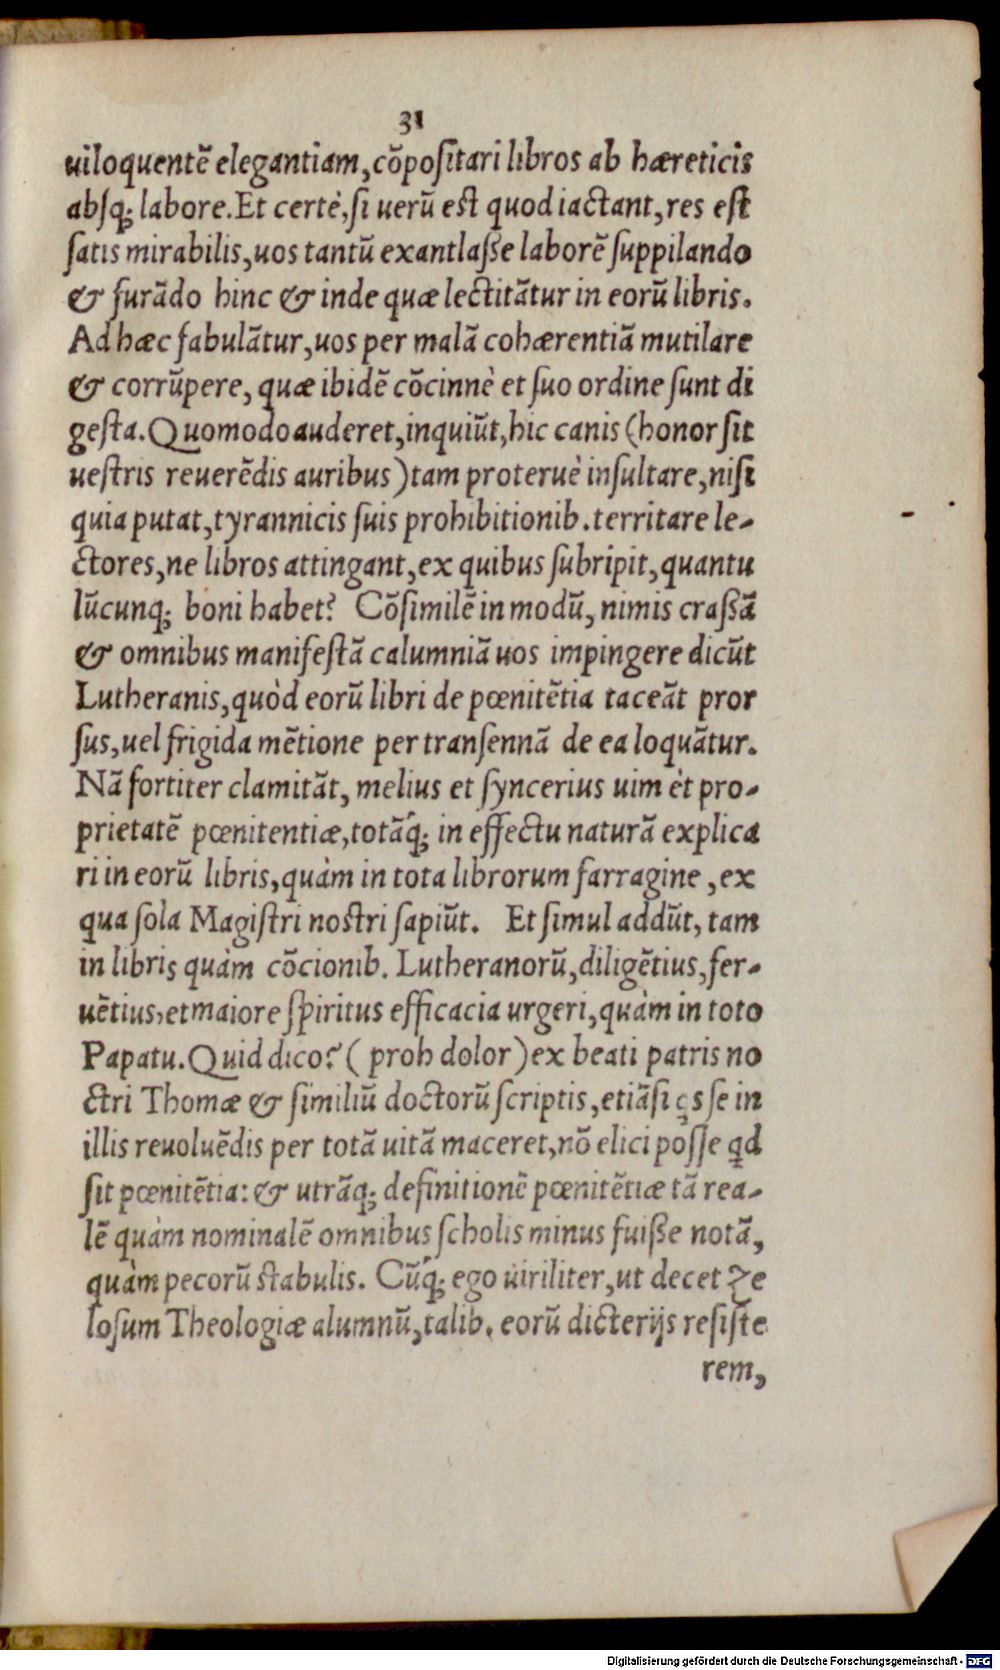 31
uiloquentē elegantiam, cōpoſitari libros ab hæreticis
abſq; labore. Et certè, ſi uerū eſt quod iactant, res eſt
ſatis mirabilis, uos tantū exantlaſſe laborē ſuppilando
& furādo hinc & inde quæ lectitātur in eorū libris.
Ad hæc fabulātur, uos per malā cohærentiā mutilare
& corrūpere, quæ ibidē cōcinnè et ſuo ordine ſunt di
geſta. Quomodo auderet, inquiūt, hic canis (honor ſit
ueſtris reuerēdis auribus) tam proteruè inſultare, niſi
quia putat, tyrannicis ſuis prohibitionib. territare le-
ctores, ne libros attingant, ex quibus ſubripit, quantu
lūcunq; boni habet? Cōſimilē in modū, nimis craſſā
& omnibus manifeſtā calumniā uos impingere dicūt
Lutheranis, quòd eorū libri de pœnitētia taceāt pror
ſus, uel frigida mētione per tranſennā de ea loquātur.
Nā fortiter clamitāt, melius et ſyncerius uim èt pro-
prietatē pœnitentiæ, totāq́; in effectu naturā explica
ri in eorū libris, quàm in tota librorum farragine, ex
qua ſola Magiſtri noſtri ſapiūt. Et ſimul addūt, tam
in libris quàm cōcionib. Lutheranorū, diligētius, fer-
uētius, et maiore ſpiritus efficacia urgeri, quàm in toto
Papatu. Quid dico? (proh dolor) ex beati patris no
ſtri Thomæ & ſimiliū doctorū ſcriptis, etiāſi qs ſe in
illis reuoluēdis per totā uitā maceret, nō elici poſſe qd
ſit pœnitētia: & utrāq; definitionē pœnitētiæ tā rea-
lē quàm nominalē omnibus ſcholis minus fuiſſe notā,
quàm pecorū ſtabulis. Cūq́; ego uiriliter, ut decet Ze
loſum Theologiæ alumnū, talib. eorū dicterijs reſiſte
rem,
Digitalisierung gefördert durch die Deutsche Forschungsgemeinschaft - DFG